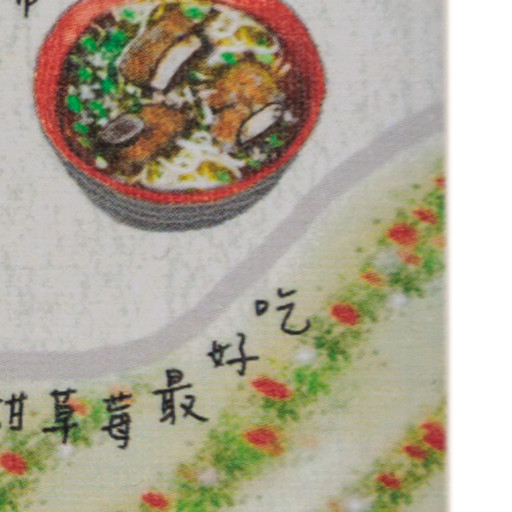 草莓最好吃